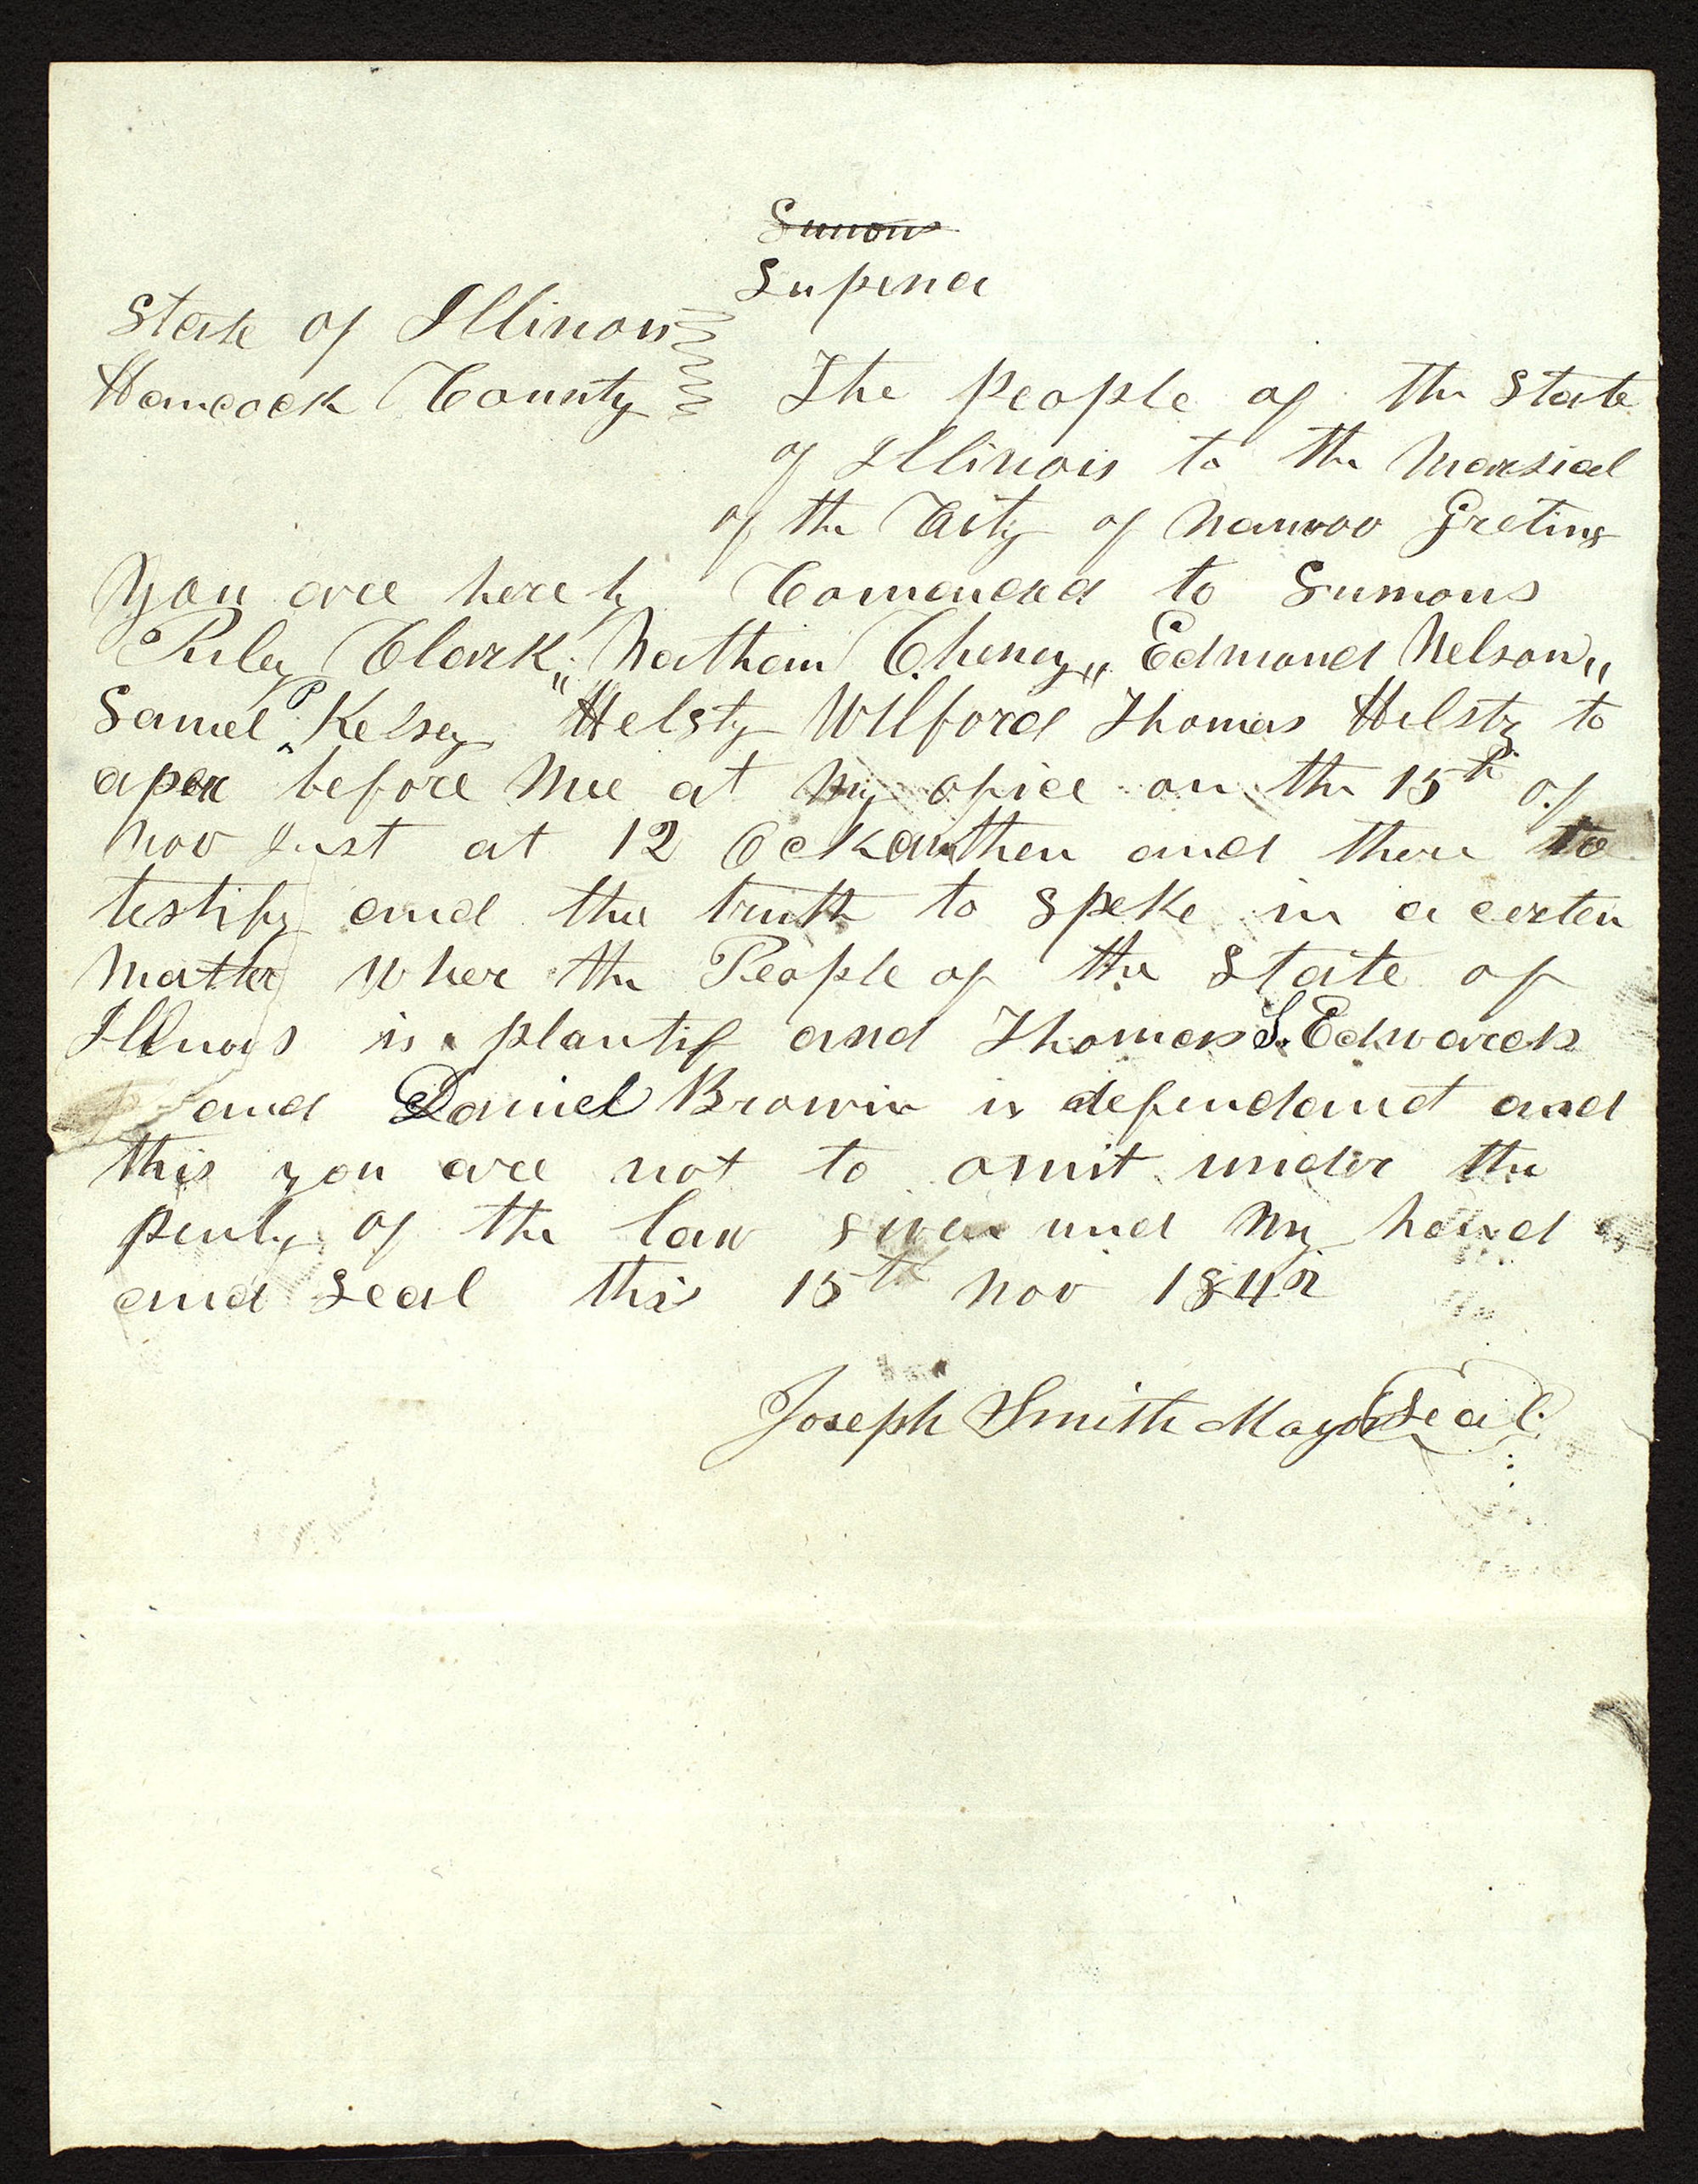 Sumons
Supena
State of Illinois
Hancock County
The people of the State
of Illinois to the Marsial
of the City of Nauvoo Greting
You are hereby Comended to Sumons
Ruley Clark,, Nathan Cheney,, Edmond Nelson,,
Samel P Kelsey " Helsty Wilford Thomas Hilsty to
aper before Mee at My ofice on the 15th of
Nov Inst at 12 Ock then and there to
testify and the truth to speke in a certen
Matter Wher the People of the State of
Illinois is plantif and Thomas S. Edwards
and Daniel Brown is defendant and
this you are not to omit under the
penlty of the law given und My hand
and Seal this 15th Nov 1842
Joseph Smith Mayor Seal